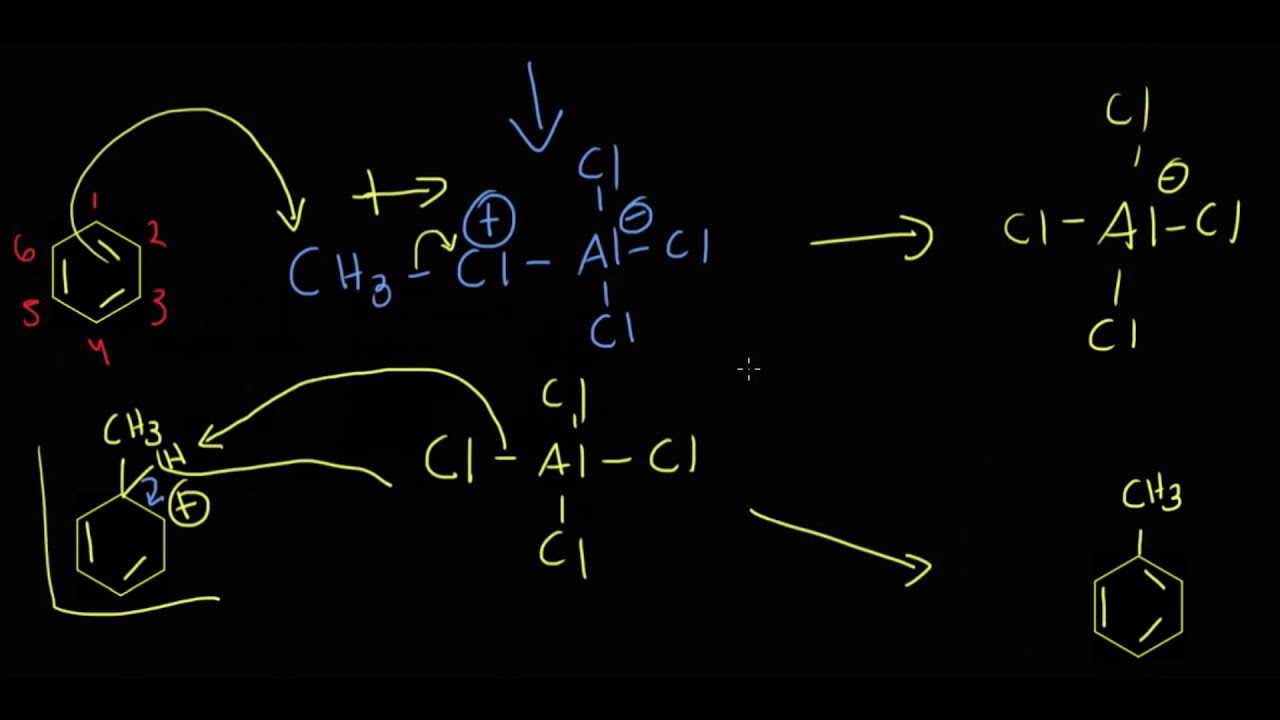 Cl
Cl ⊖
1 + ⊖
6 2 CH3 - Cl - Al - Cl Cl - Al - Cl
5 3 Cl Cl
4
Cl
CH3
H Cl - Al - Cl
+ CH3
Cl